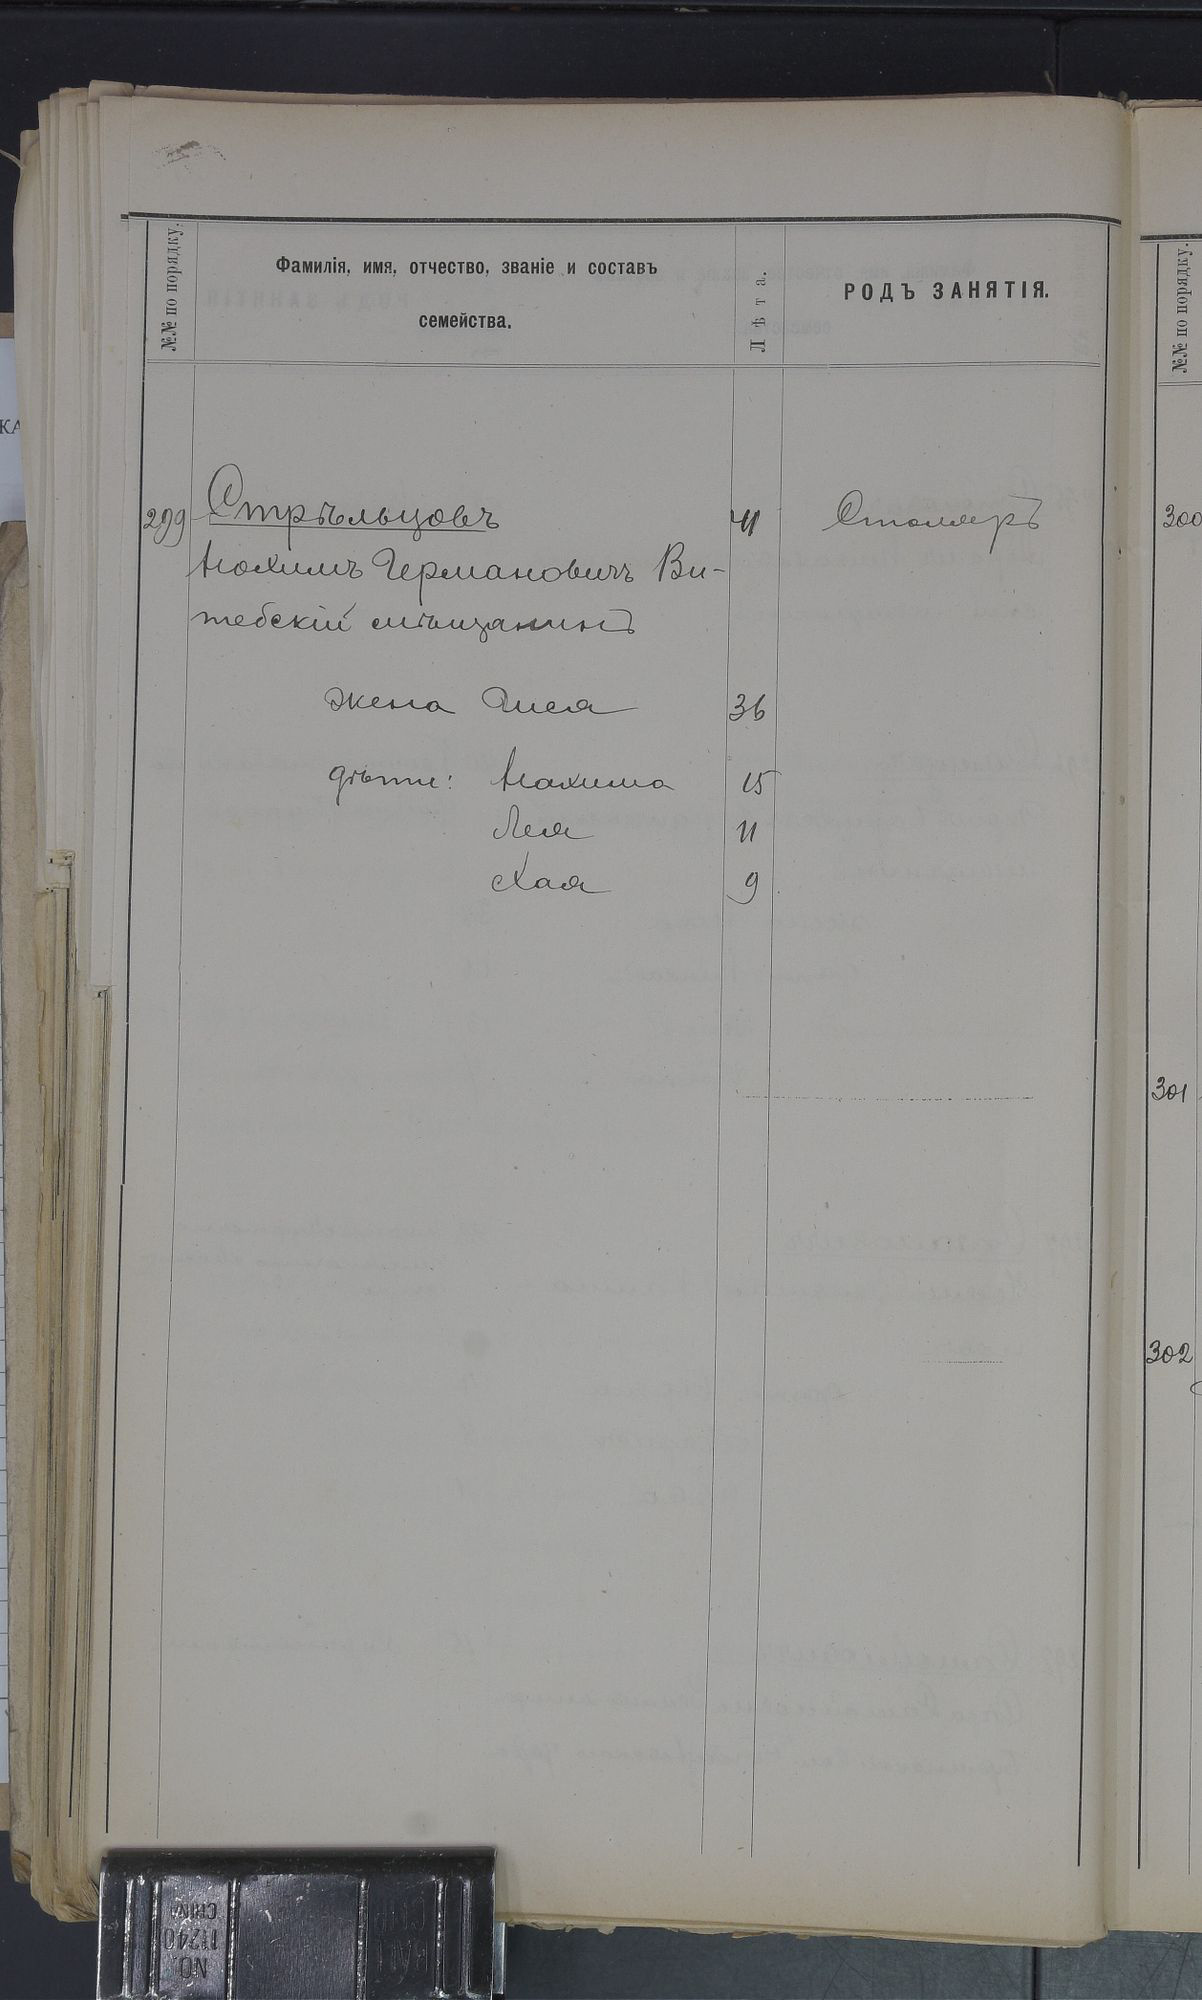 №№ по порядку.
Фамилія, имя, отчество, званіе и составъ
семейства.
Лѣта.
РОДЪ ЗАНЯТІЯ.
299 Стрѣльцовъ 41 Столяръ
Нохимъ Германовичъ Ви-
тебскій мѣщанинъ
жена 36
дѣти: Нахима 15
Лея 11
Хая 9
№№ по порядку.
300
301
302
КА
NO.
11240